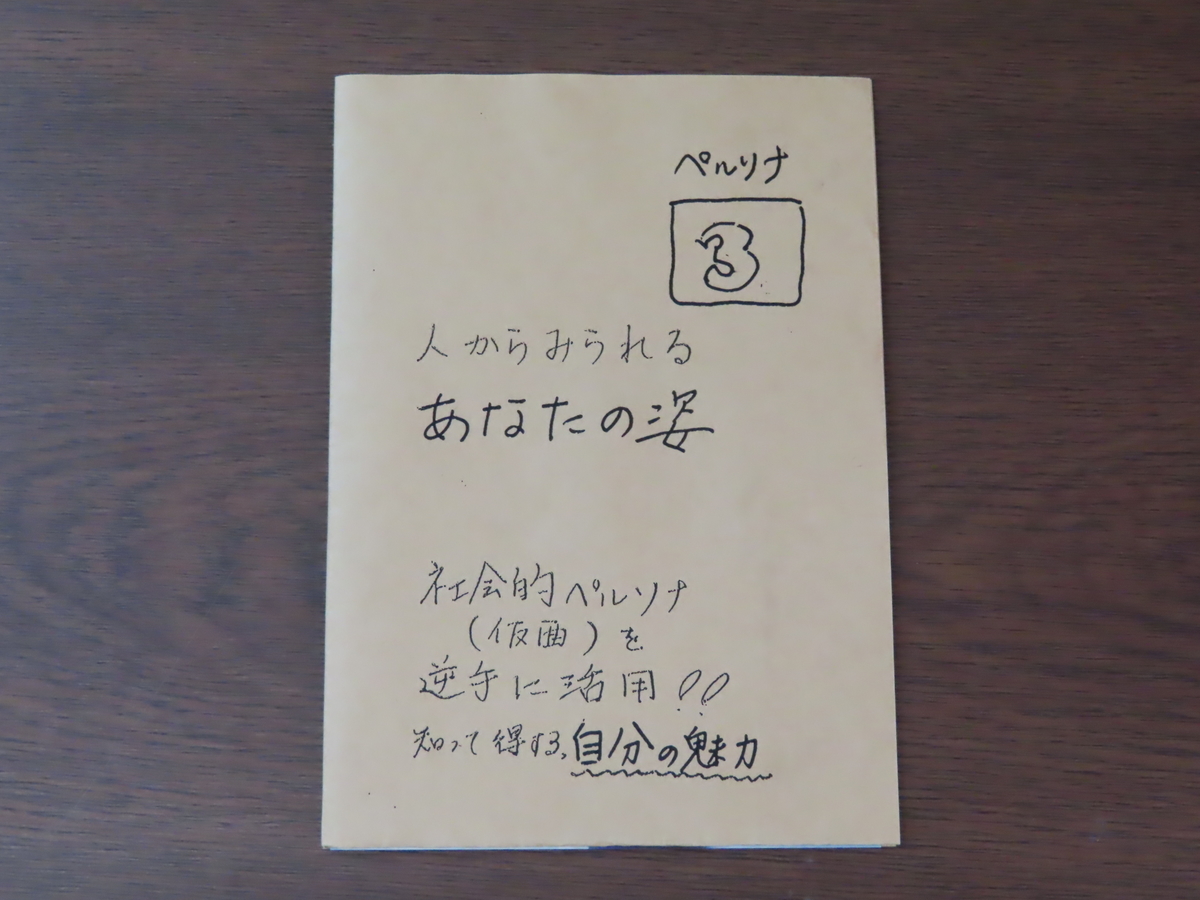 ペルソナ
3
人からみられる
あなたの姿
社会的ペルソナ
(仮面)を
逆手に活用!!
知って得する、自分の魅力